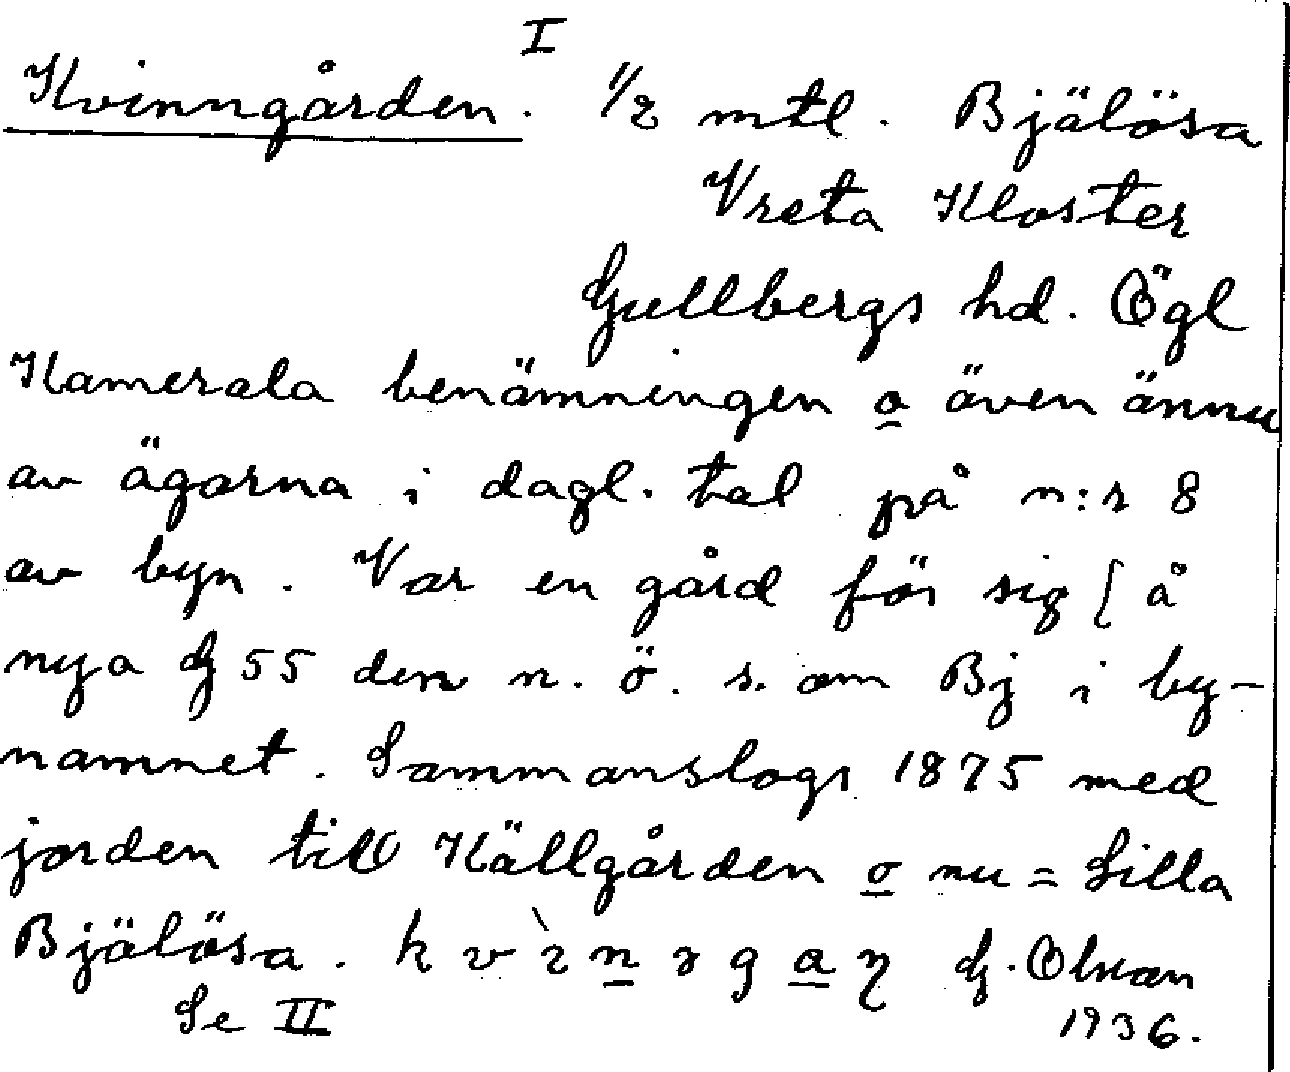 I
Kvinngården. 1/2 mtl. Bjälösa
Vreta Kloster
Gullbergs hd. Ögl
Kamerala benämningen o även ännu
av ägarna i dagl. tal på n:r 8
av byn. Var en gård för sig [ å
nya G 55 den n. ö. s. om Bj i by-
namnet. Sammanslogs 1875 med
jorden till Källgården o nu = Lilla
Bjälösa. G. Olson
Se II 1936.